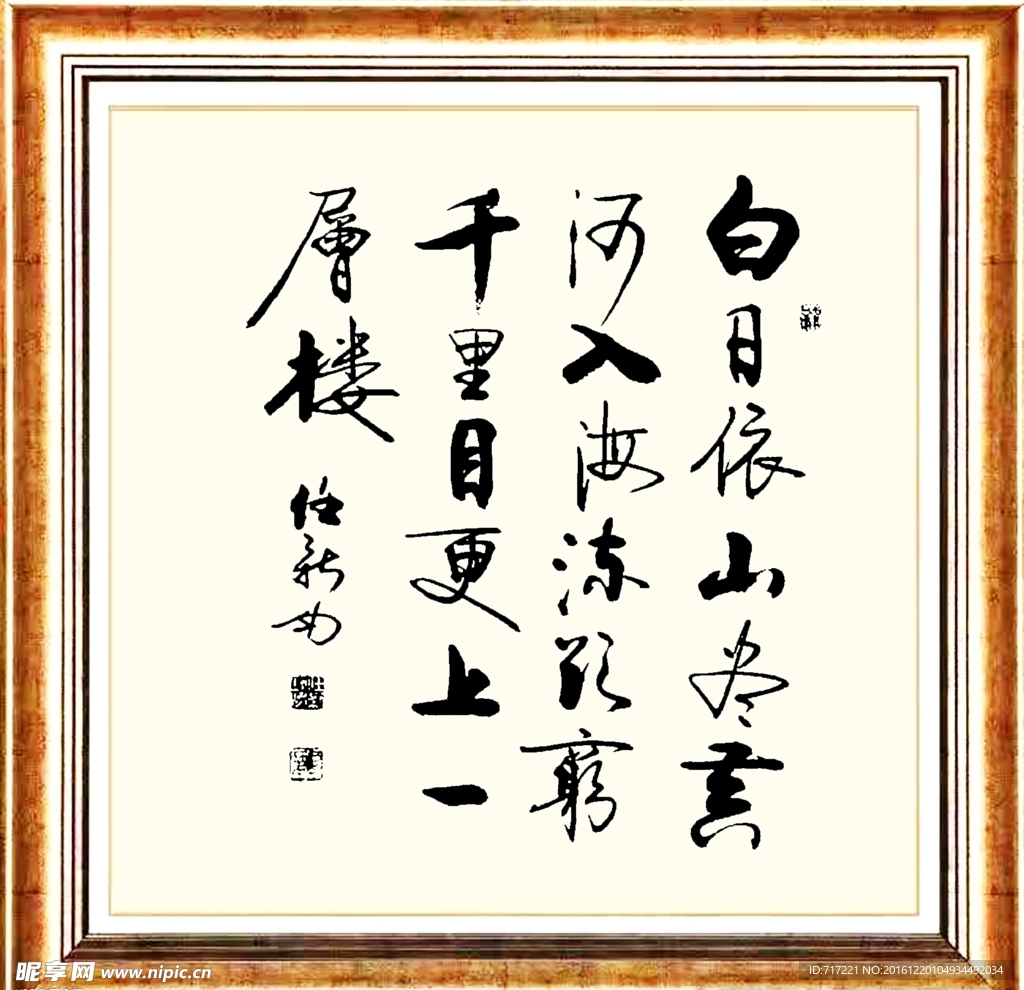 白日依山尽黄
河入海流欲穷
千里目更上一
层楼
任新
昵享网 www.nipic.cn
ID:717221 NO:20161220104934492034